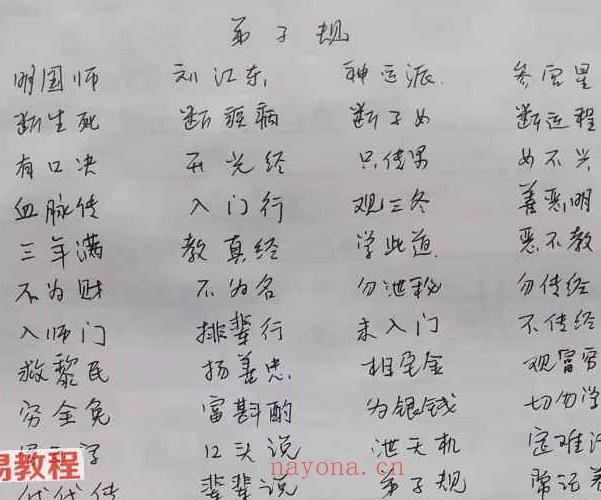 弟子规
明国师 刘江东 神运派 参宫星
断生死 断疾病 断子女 断远程
有口决 开光经 只传男 女不兴
血脉传 入门行 观三冬 善恶明
三年满 教真经 学此道 恶不教
不为财 不为名 勿泄秘 勿传经
入师门 排辈行 未入门 不传经
救黎民 扬善忠 相宅金 观富穷
穷全免 富斟酌 为银钱 切勿学
口头说 泄天机 定难
代代传 辈辈说 弟子规 常记
易教程
nayona.cn